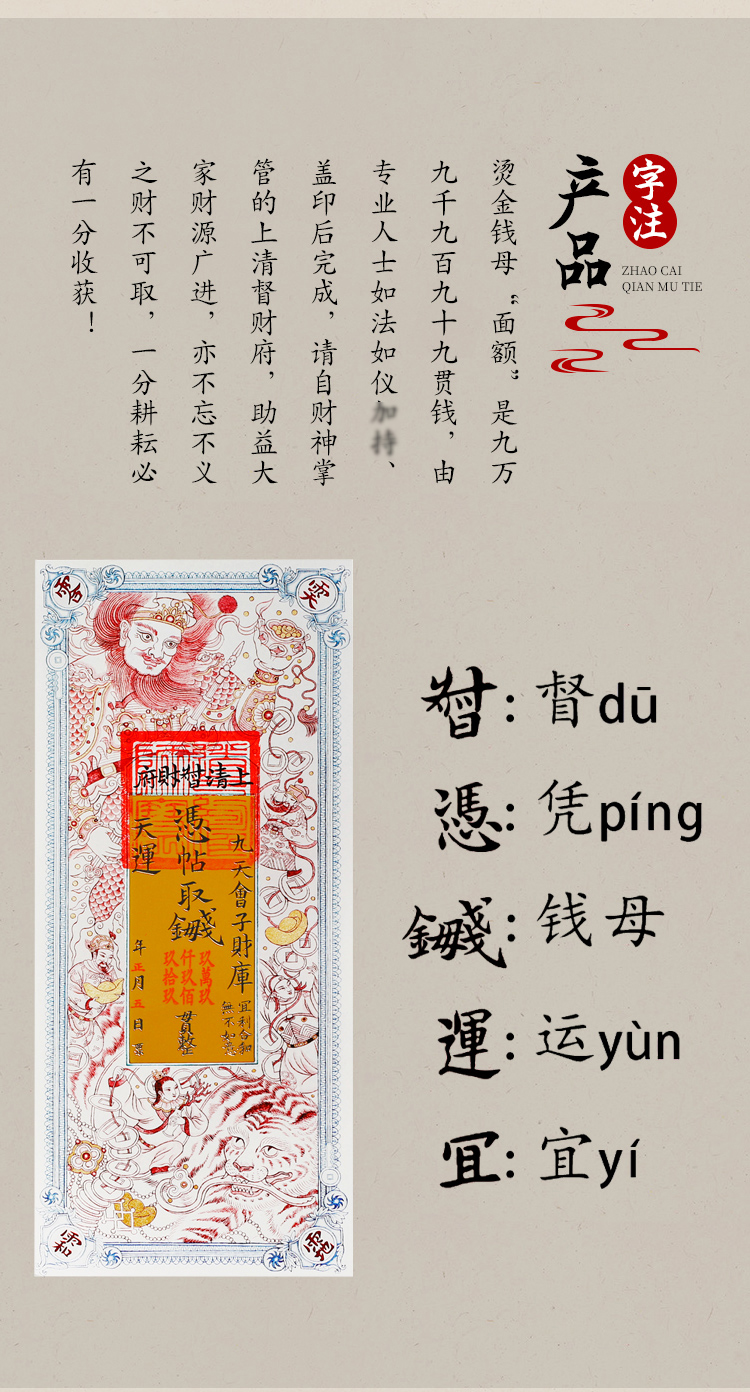 产品
字注
ZHAO CAI
QIAN MU TIE
烫金钱母“面额”是九万
九千九百九十九贯钱，由
专业人士如法如仪加持、
盖印后完成，请自财神掌
管的上清督财府，助益大
家财源广进，亦不忘不义
之财不可取，一分耕耘必
有一分收获！
上清 財府
九天會子財庫
宜利合和
無不如意
憑帖取
玖萬玖
仟玖佰
玖拾玖
貫整
天運
年正月五日 票
：督dū
憑：凭píng
：钱母
運：运yùn
冝：宜yí